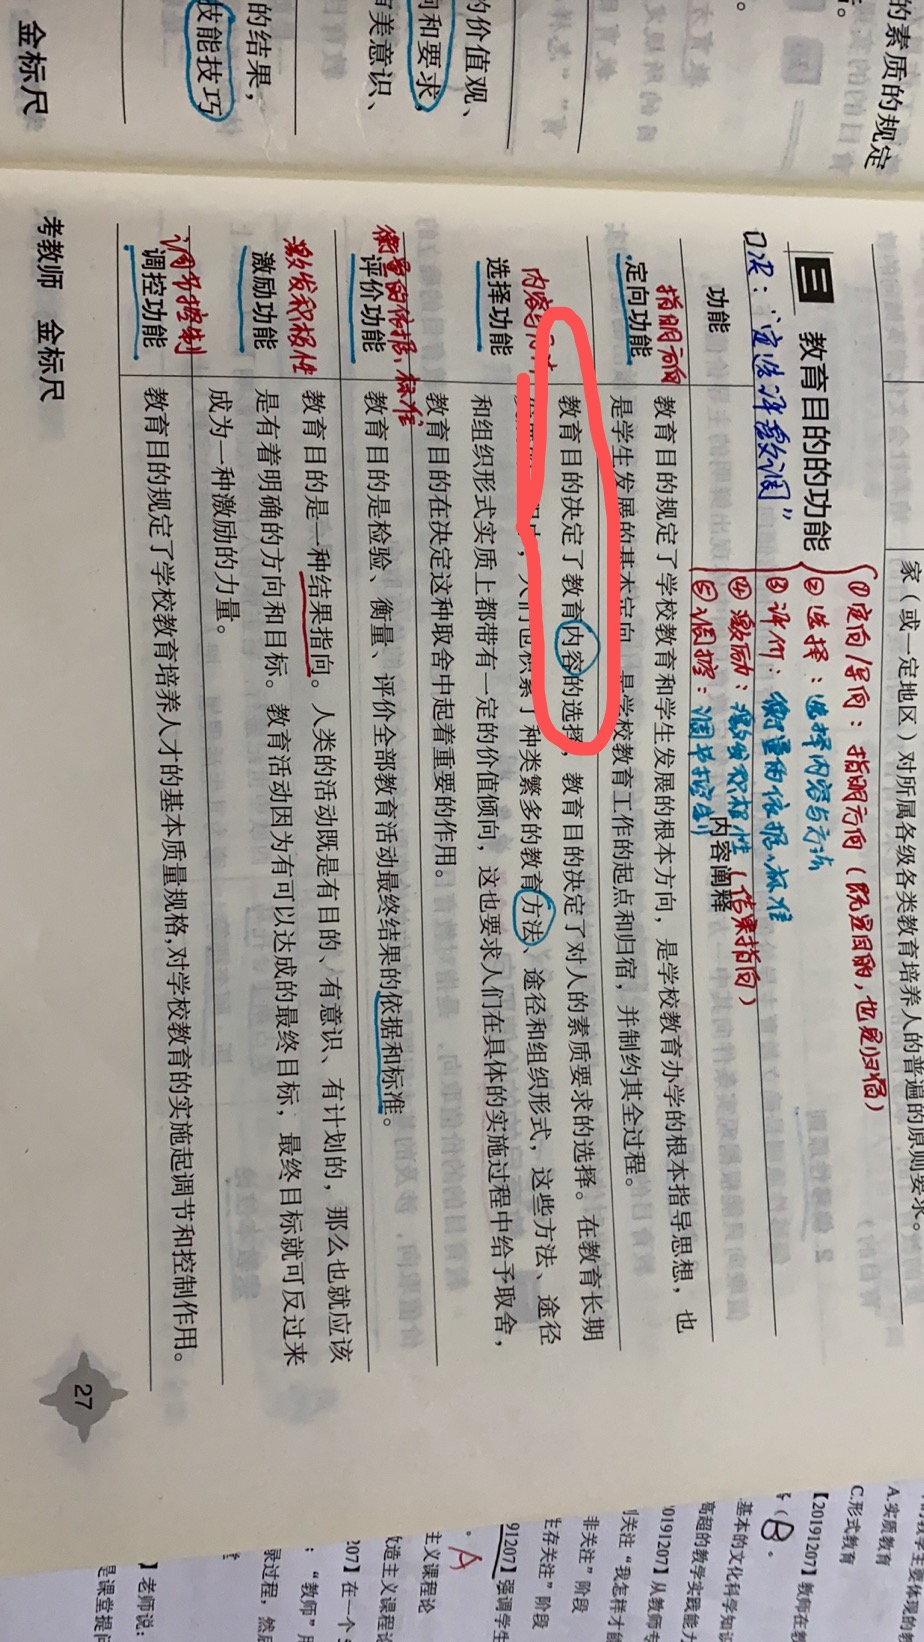 的素质的规定
的价值观、
和要求,
美意识、
的结果,
技能技巧
金标尺
家（或一定地区）对所属各级各类教育培养人的普遍的原则要求。
三 教育目的的功能
口决：“定选评激调”
①定向/导向：指明方向（既是目的，也是归宿）
②选择：选择内容与方法
③评价：衡量的依据、标准
④激励：激发积极性（结果指向）
⑤调控：调节控制
功能
内容阐释
指明方向
定向功能
教育目的规定了学校教育和学生发展的根本方向，是学校教育办学的根本指导思想，也
是学生发展的基本定向，是学校教育工作的起点和归宿，并制约其全过程。
选择功能
教育目的决定了教育内容的选择，教育目的决定了对人的素质要求的选择。在教育长期
人们也积累了种类繁多的教育方法、途径和组织形式，这些方法、途径
和组织形式实质上都带有一定的价值倾向，这也要求人们在具体的实施过程中给予取舍，
教育目的在决定这种取舍中起着重要的作用。
衡量的依据、标准
评价功能
教育目的是检验、衡量、评价全部教育活动最终结果的依据和标准。
激发积极性
激励功能
教育目的是一种结果指向。人类的活动既是有目的、有意识、有计划的，那么也就应该
是有着明确的方向和目标。教育活动因为有可以达成的最终目标，最终目标就可反过来
成为一种激励的力量。
调节控制
调控功能
教育目的规定了学校教育培养人才的基本质量规格,对学校教育的实施起调节和控制作用。
考教师 金标尺
27
A.实质教育
C.形式教育
【20191207】教师在教
（B）。
基本的文化科学知识
高超的教学实践能力
0191207】从教师专
关注“我怎样才能
非关注”阶段
生存关注”阶段
91207】强调学生
。A
主义课程论
改造主义课程论
207】在一个
：“教师”用
录过程，然后
】老师说：
是课堂提问